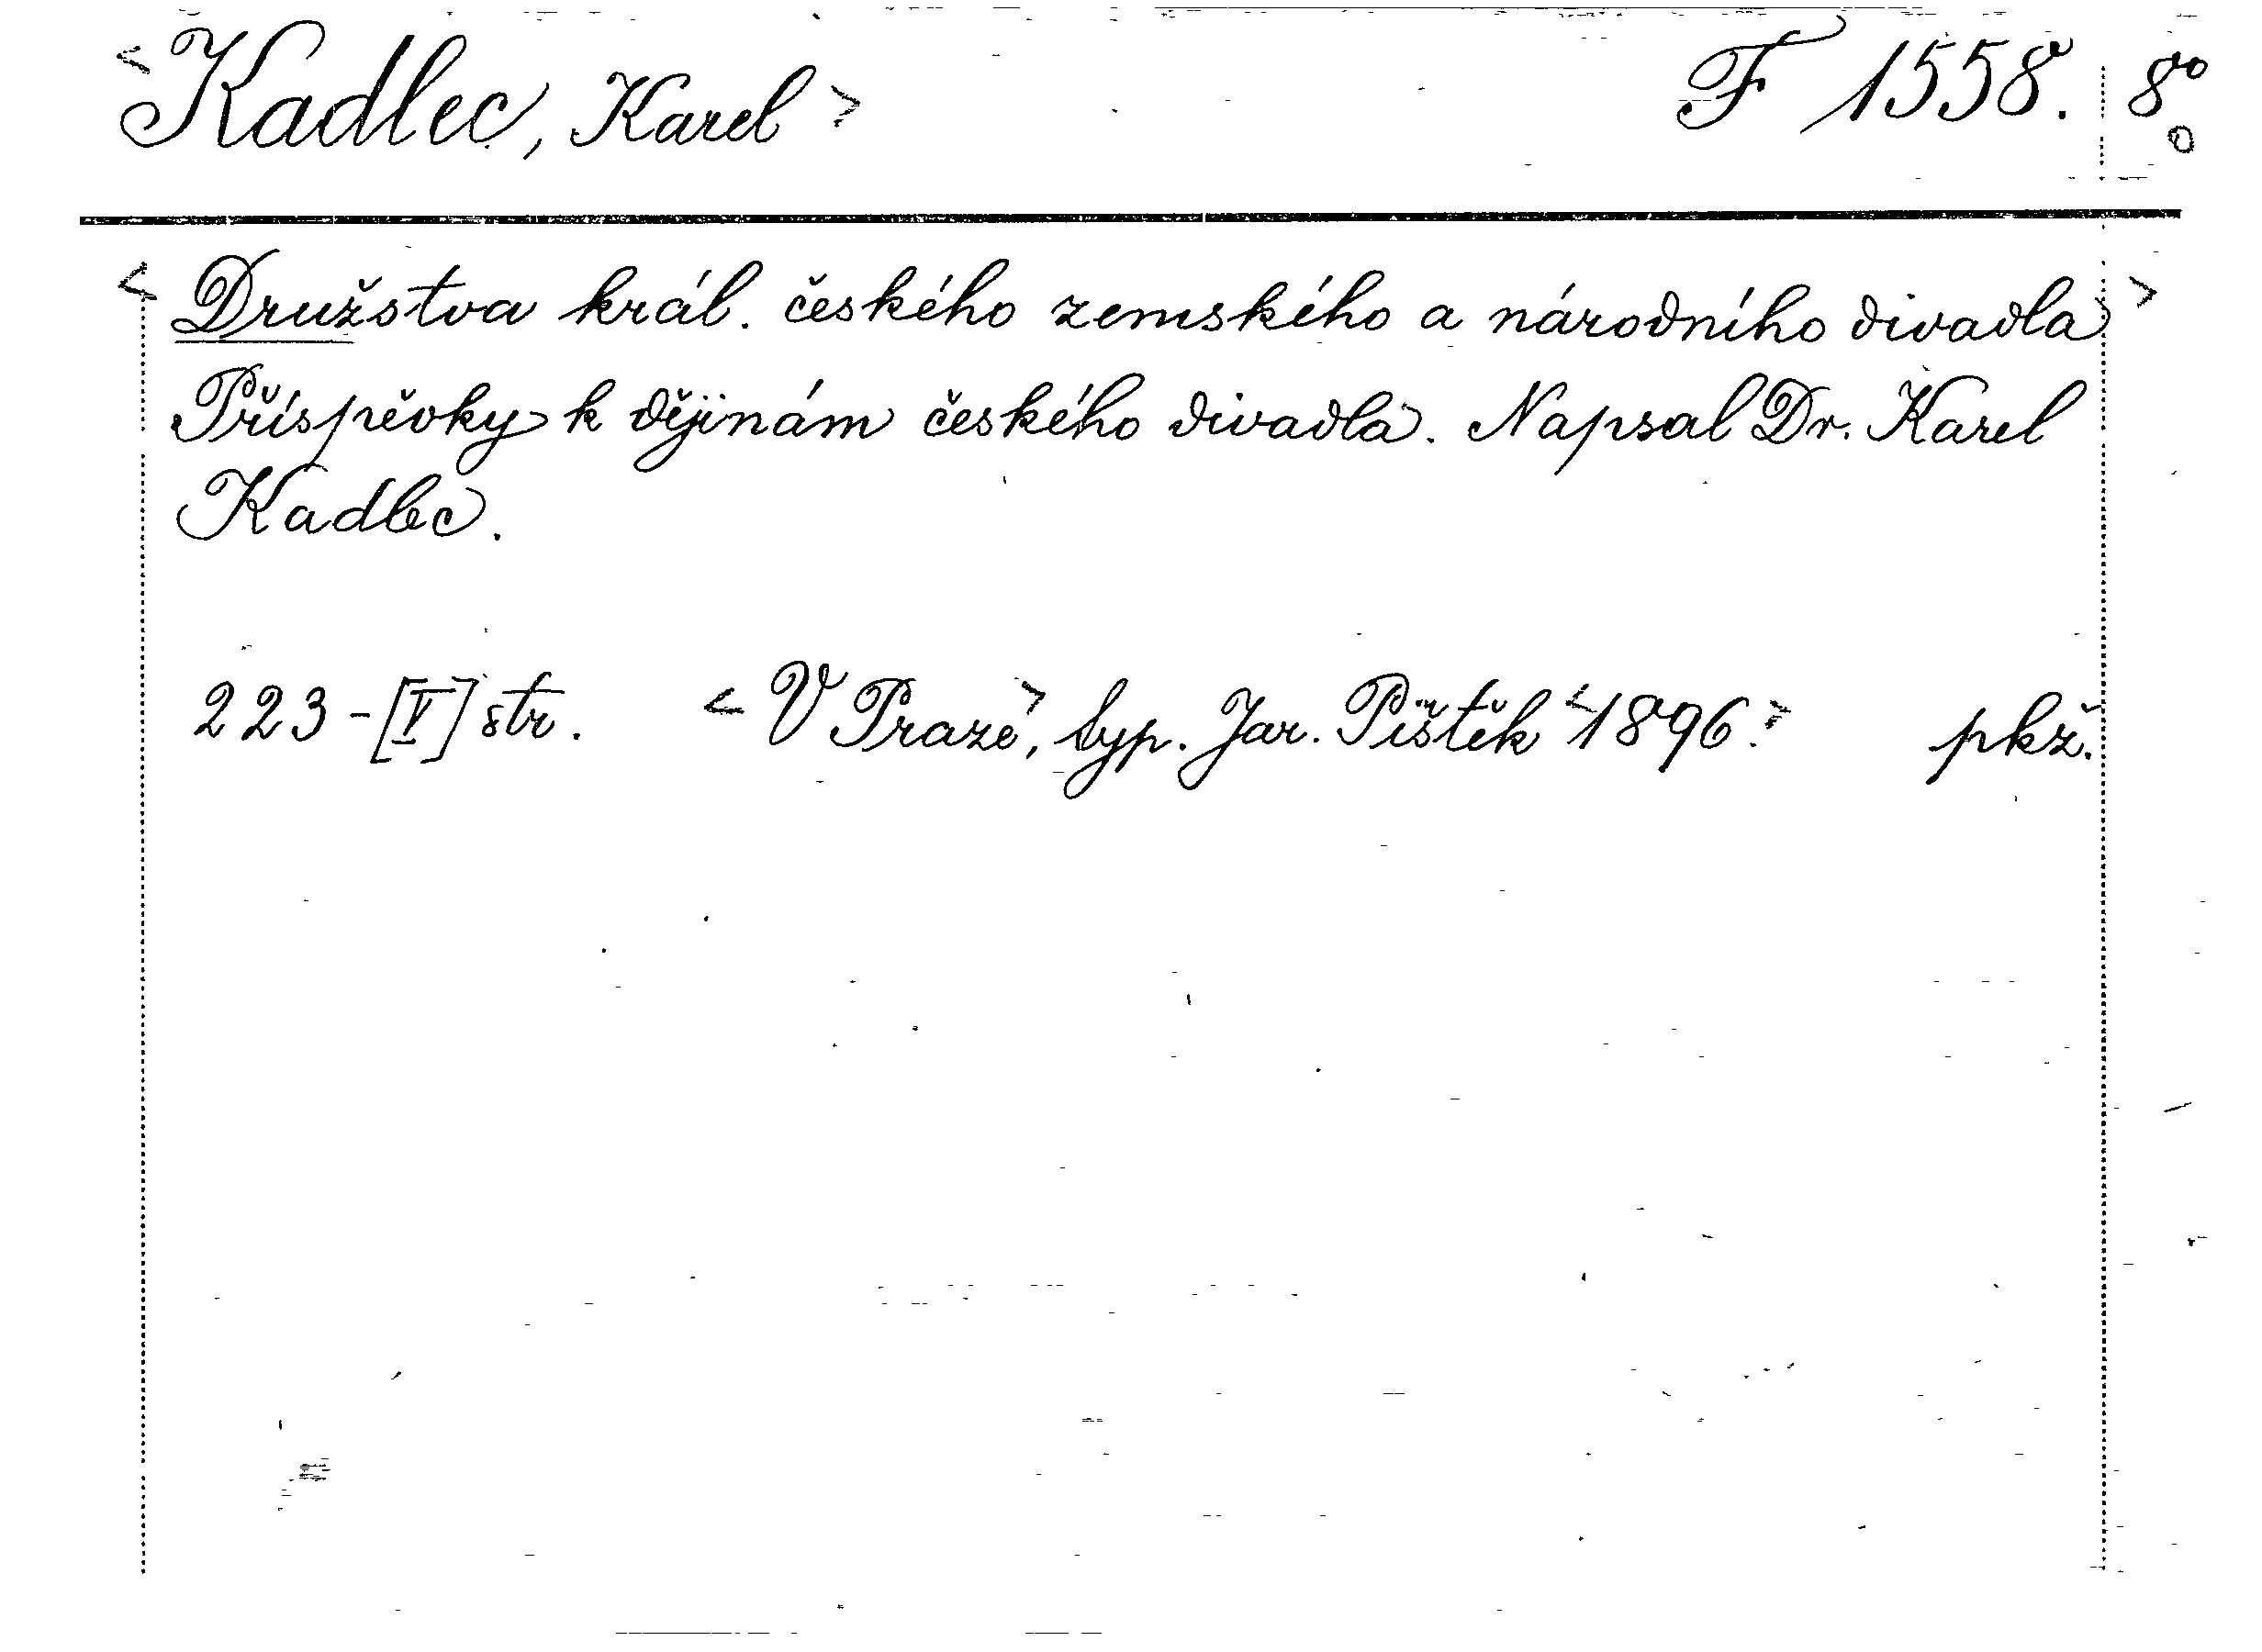 <Kadlec, Karel> F 1558. 8°
<Družstva král. českého zemského a národního divadla>
Příspěvky k dějinám českého divadla. Napsal Dr. Karel
Kadlec.
223-[V] str. <V Praze>, typ. Jar. Pištěk <1896.> pkž.